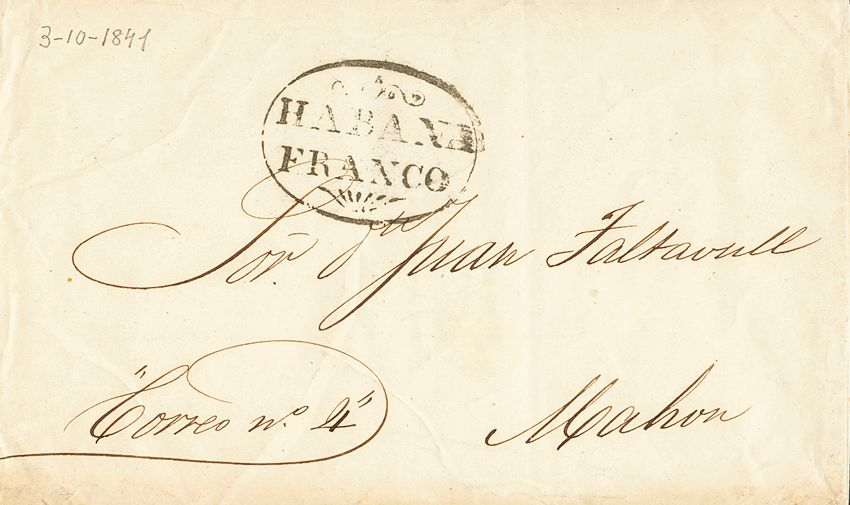 3-10-1841
HABANA
FRANCO
Sōr dn Juan Taltavull
"Correo nº. 4"
Mahon